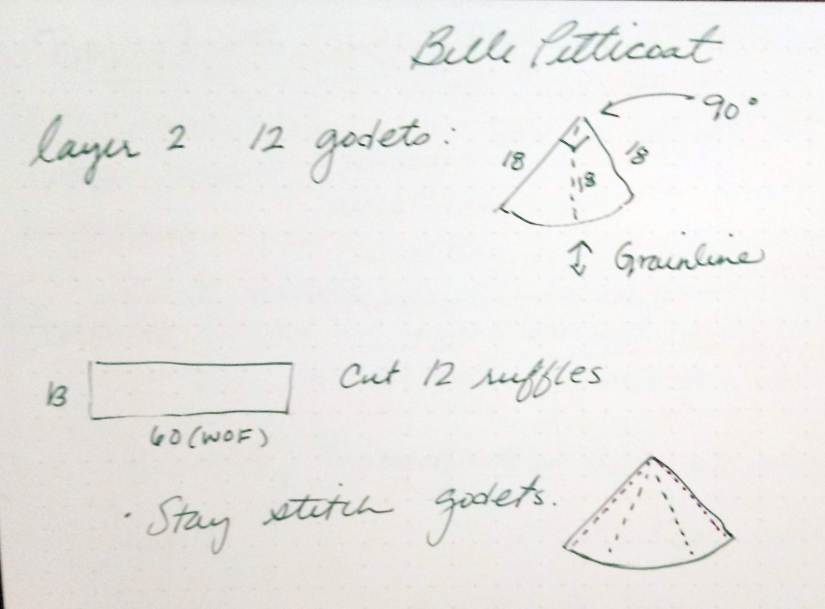 Belle Petticoat
layer 2 12 godets:
90°
18
18
18
Grainline
13
Cut 12 ruffles
60 (WOF)
· Stay stitch godets.